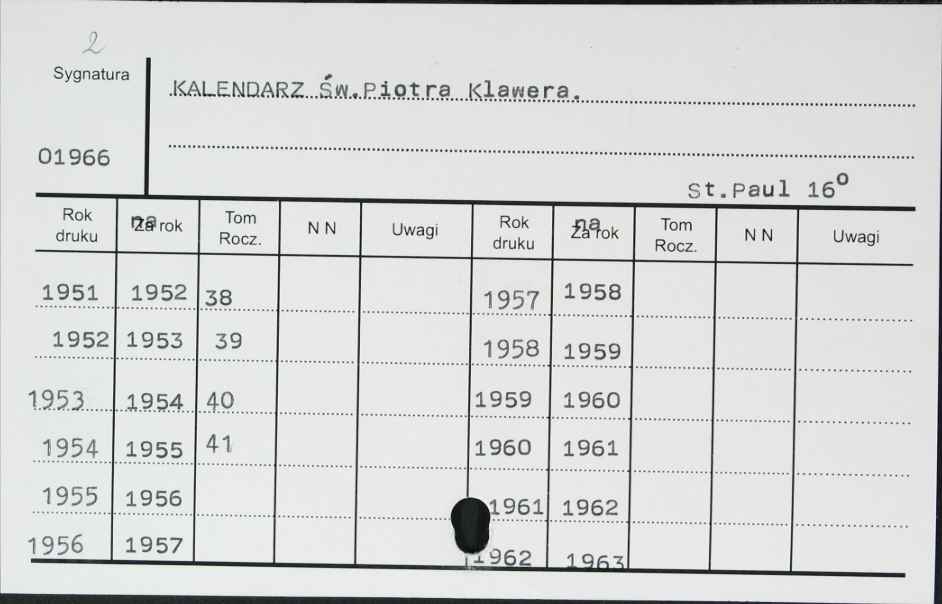 2
Sygnatura
KALENDARZ Św.Piotra Klawera.
01966
St.Paul 16o
Rok druku na Za rok Tom Rocz. N N Uwagi Rok druku na Za rok Tom Rocz. N N Uwagi
1951 1952 38 1957 1958
1952 1953 39 1958 1959
1953 1954 40 1959 1960
1954 1955 41 1960 1961
1955 1956 1961 1962
1956 1957 1962 1963